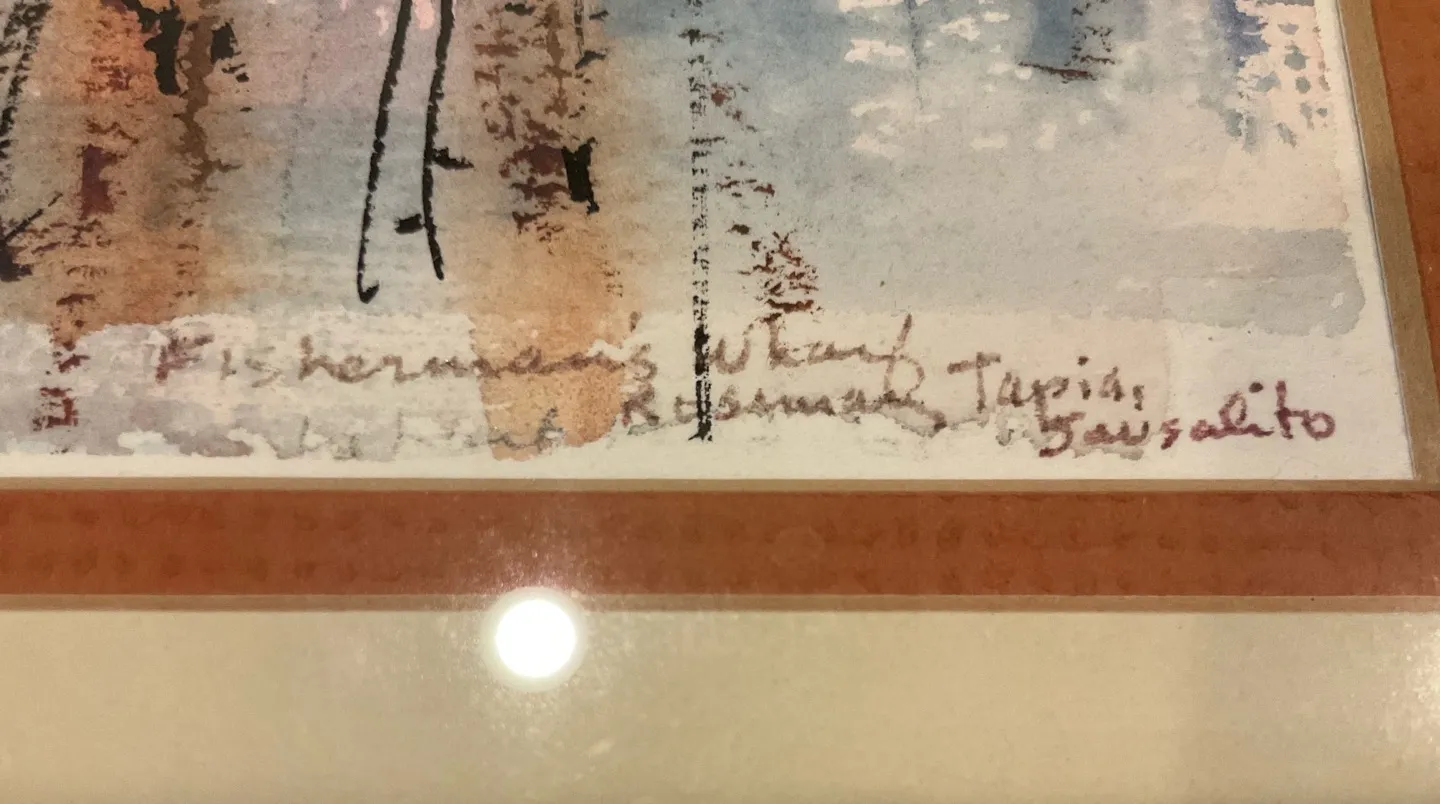 Fisherman's Wharf
Rosemary Tapia,
Sausalito